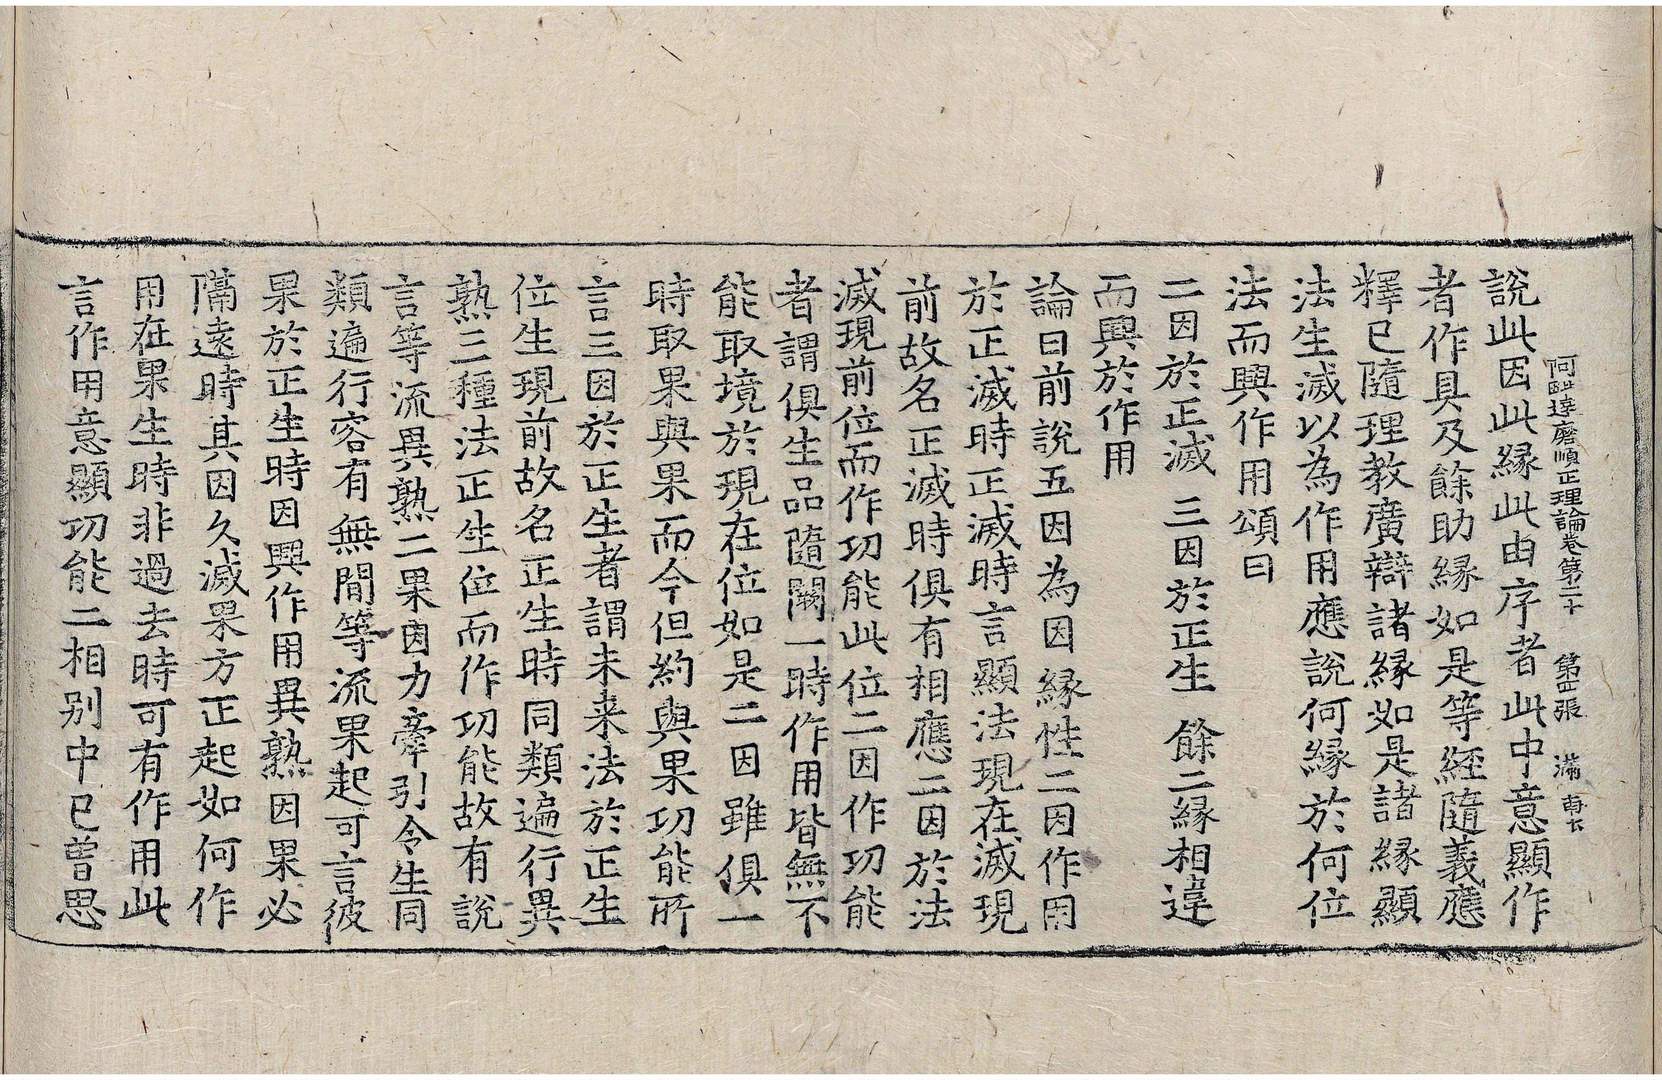 阿毗達磨順正理論卷第二十 第四張 滿
說此因此緣此由序者此中意顯作
者作具及餘助緣如是等經隨義應
釋已隨理教廣辯諸緣如是諸緣顯
法生滅以為作用應說何緣於何位
法而興作用頌曰
二因於正滅 三因於正生 餘二緣相違
而興於作用
論曰前說五因為因緣性二因作用
於正滅時正滅時言顯法現在滅現
前故名正滅時俱有相應二因於法
滅現前位而作功能此位二因作功能
者謂俱生品隨闕一時作用皆無不
能取境於現在位如是二因雖俱一
時取果與果而今但約與果功能所
言三因於正生者謂未来法於正生
位生現前故名正生時同類遍行異
熟三種法正生位而作功能故有說
言等流異熟二果因力牽引令生同
類遍行容有無間等流果起可言彼
果於正生時因興作用異熟因果必
隔遠時其因久滅果方正起如何作
用在果生時非過去時可有作用此
言作用意顯功能二相別中已曾思